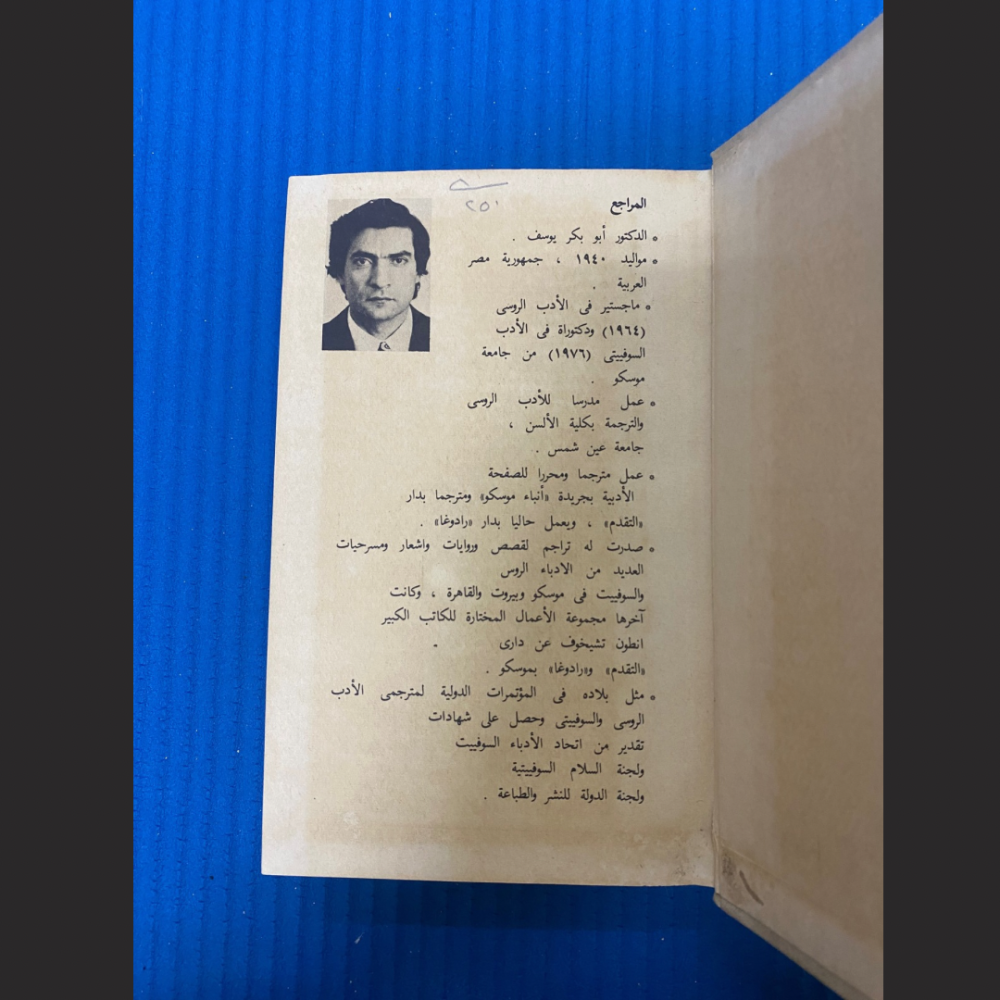 ٢٥٠
المراجع
• الدكتور أبو بكر يوسف .
• مواليد ١٩٤٠ ، جمهورية مصر
العربية .
• ماجستير فى الأدب الروسى
(١٩٦٤) ودكتوراة فى الأدب
السوفييتى (١٩٧٦) من جامعة
موسكو .
• عمل مدرسا للأدب الروسى
والترجمة بكلية الألسن ،
جامعة عين شمس .
• عمل مترجما ومحررا للصفحة
الأدبية بجريدة «أنباء موسكو» ومترجما بدار
«التقدم» ، ويعمل حاليا بدار «رادوغا» .
• صدرت له تراجم لقصص وروايات واشعار ومسرحيات
العديد من الادباء الروس
والسوفييت فى موسكو وبيروت والقاهرة ، وكانت
آخرها مجموعة الأعمال المختارة للكاتب الكبير
انطون تشيخوف عن دارى .
«التقدم» و«رادوغا» بموسكو .
• مثل بلاده فى المؤتمرات الدولية لمترجمى الأدب
الروسى والسوفييتى وحصل على شهادات
تقدير من اتحاد الأدباء السوفييت
ولجنة السلام السوفييتية
ولجنة الدولة للنشر والطباعة .